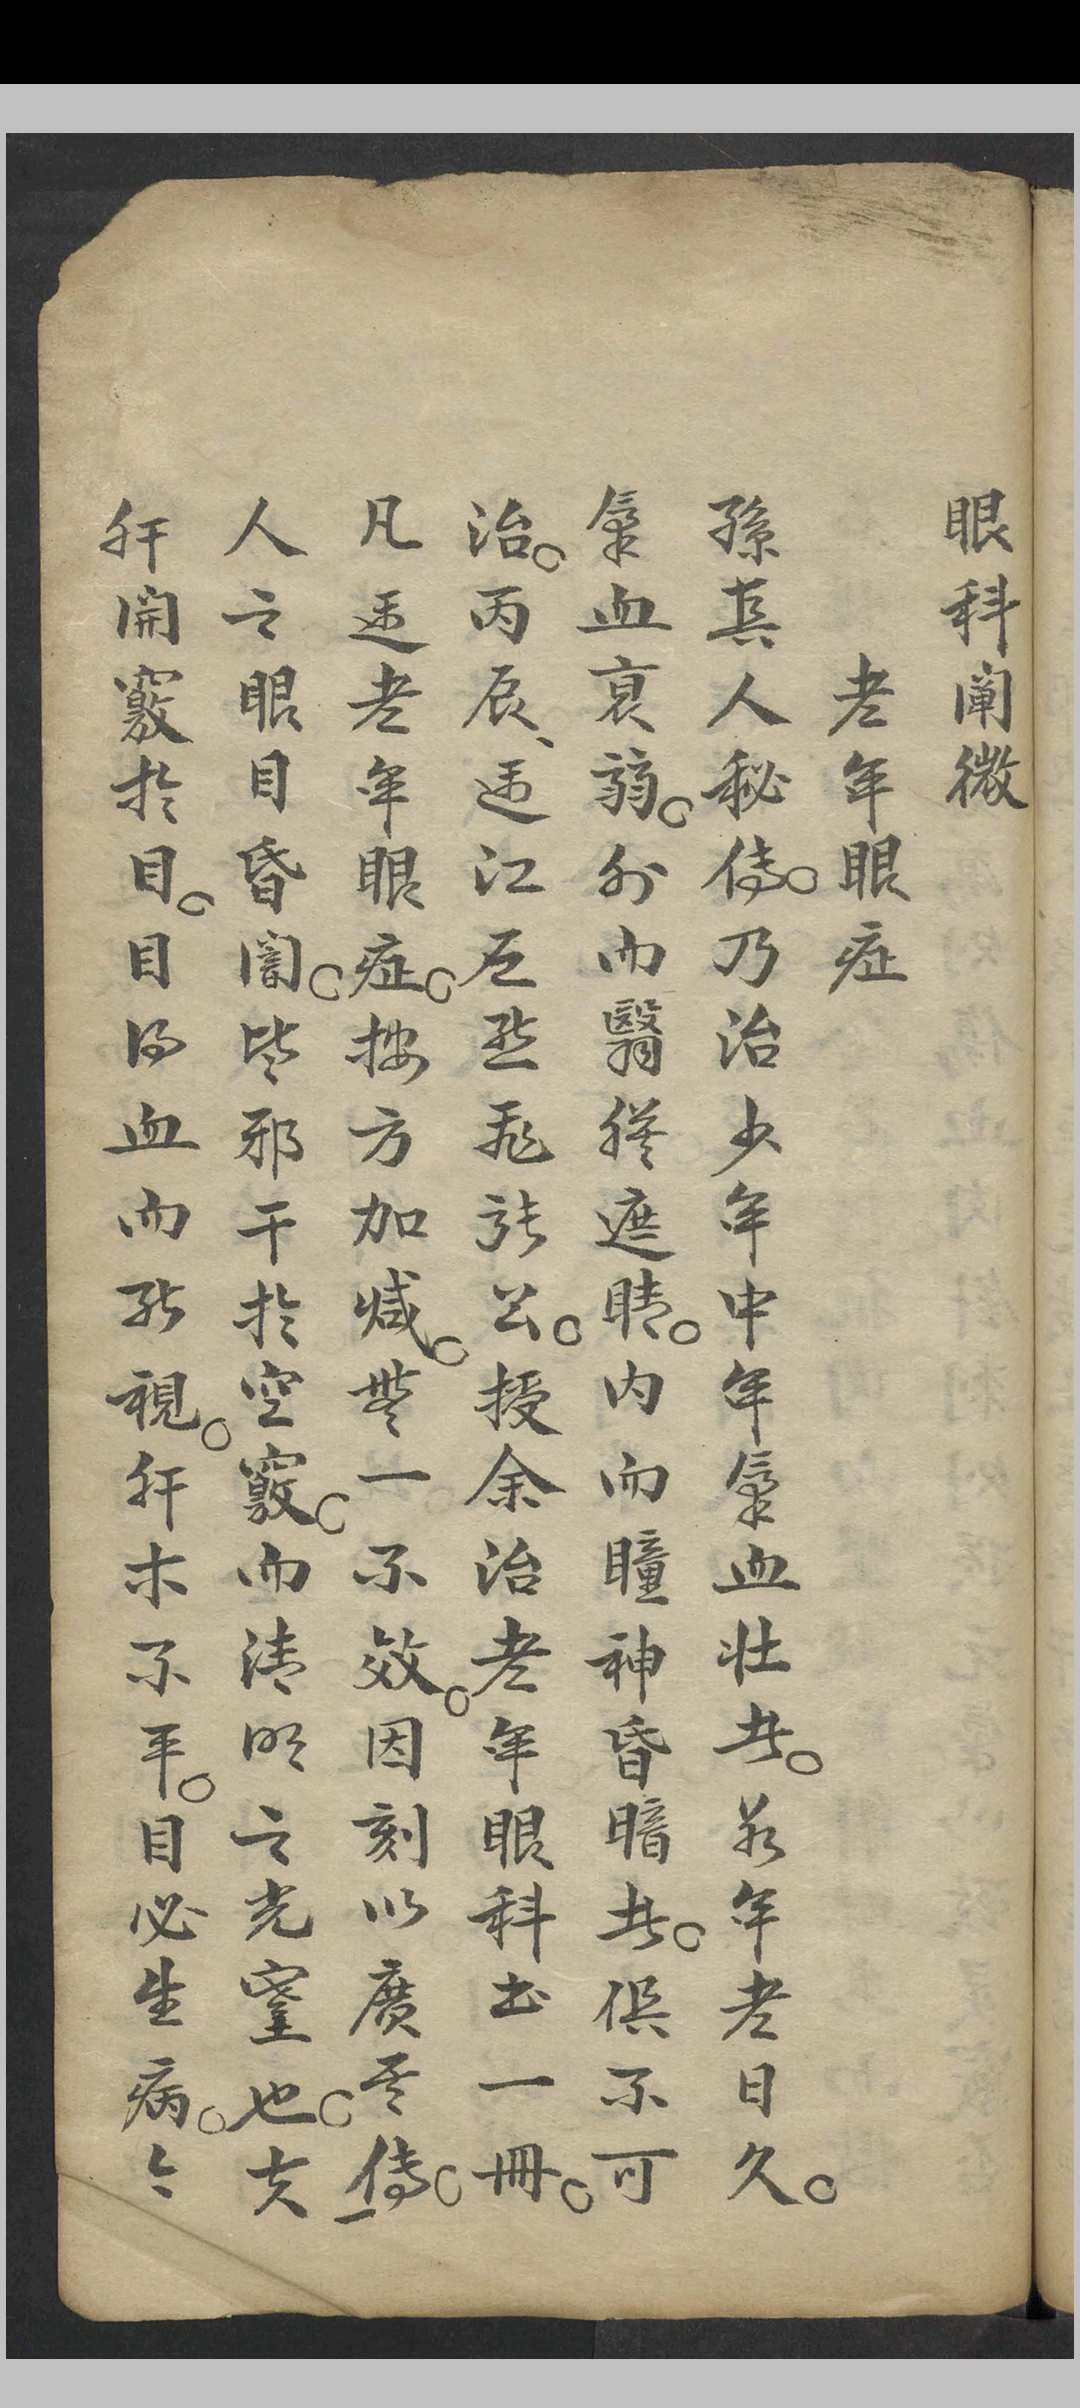 眼科闡微
老年眼症
孫真人秘傳。乃治少年中年氣血壯者。若年老日久。
氣血衰弱。外而翳膜遮睛。內而瞳神昏暗者。俱不可
治。丙辰、遇江左熙张公。授余治老年眼科書一冊。
凡遇老年眼症。按方加減。無一不效。因刻以廣其傳。
人之眼目昏闇。皆邪干於空竅。而清明之光窒也。夫
肝開竅於目。目得血而能視。肝木不平。目必生病。